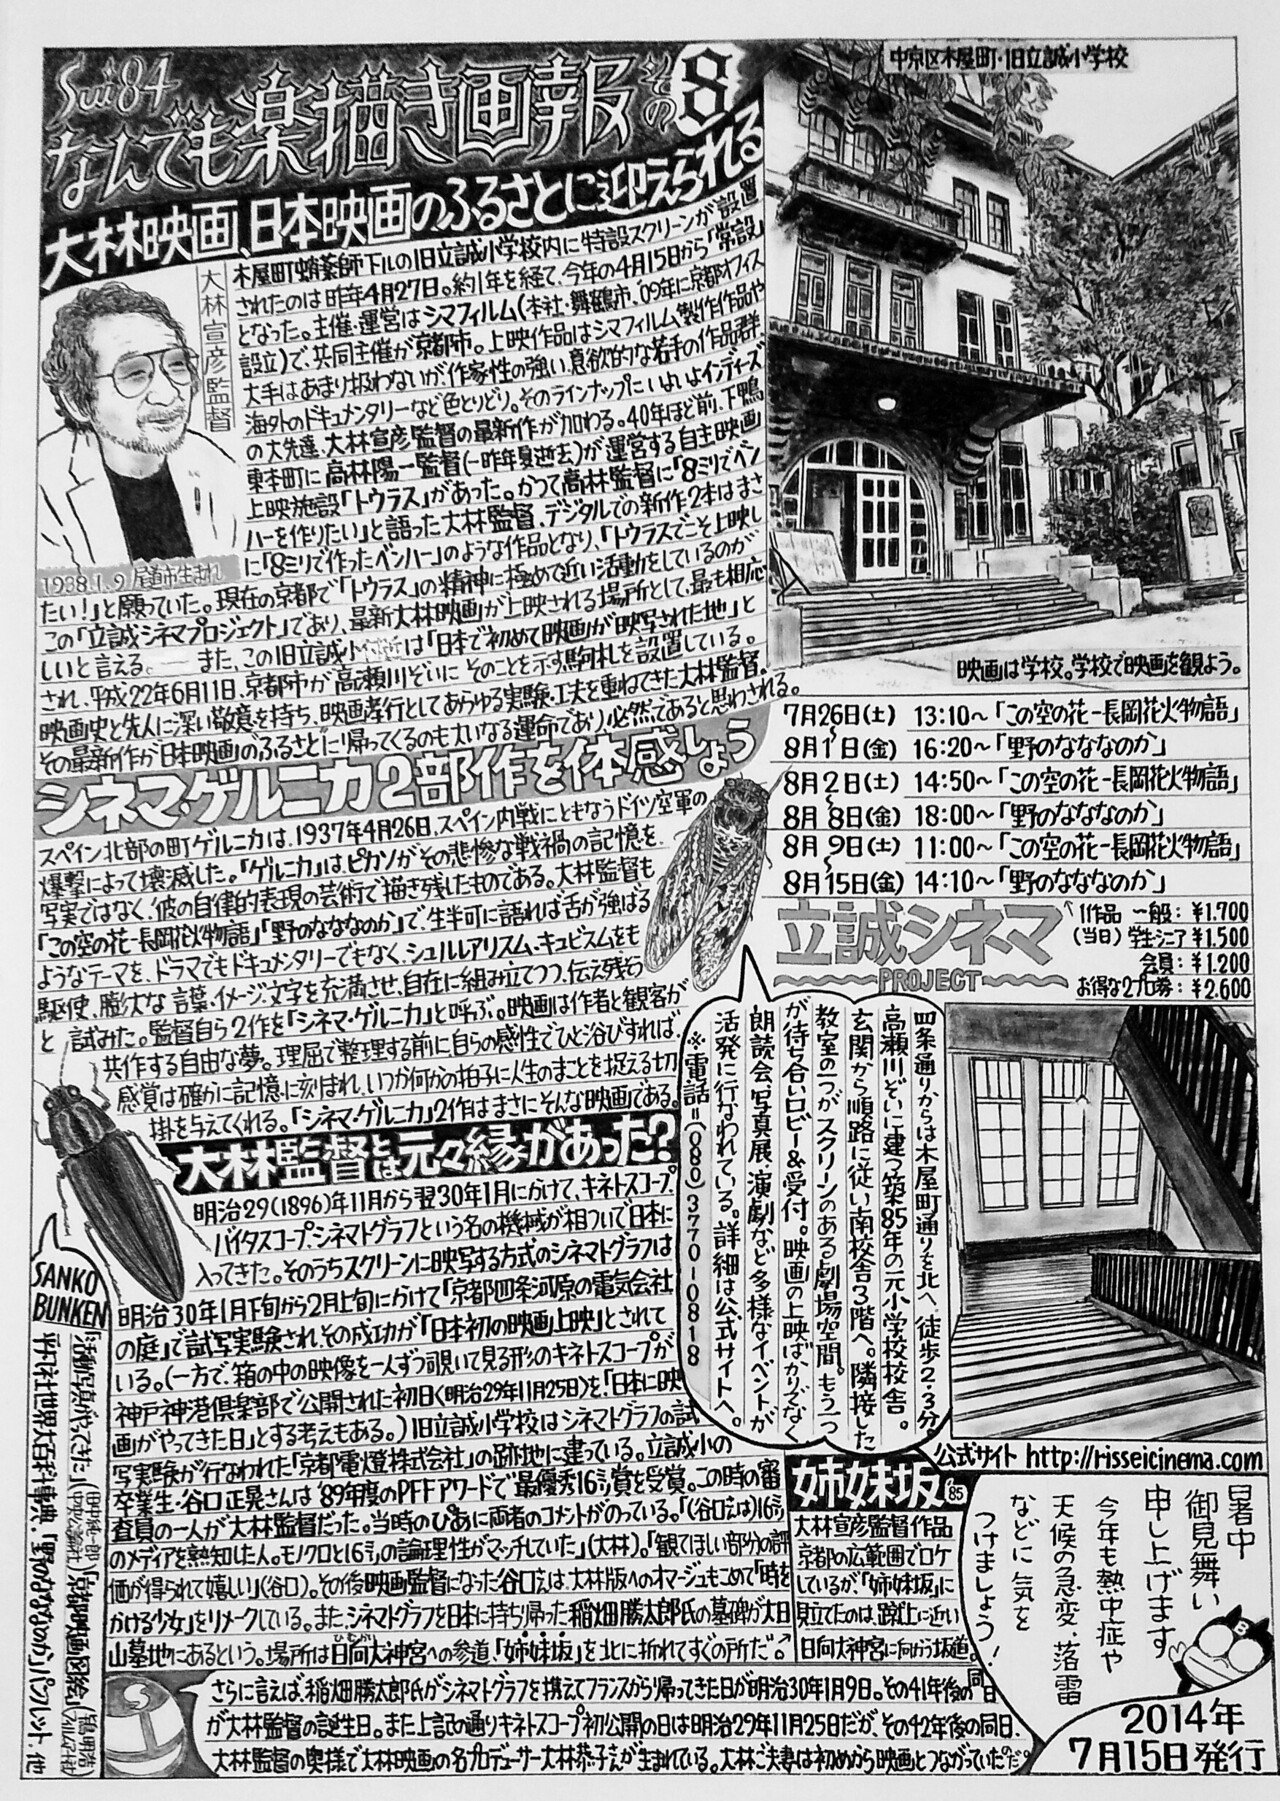 Sui'84
なんでも楽描き画報 その8
大林映画、日本映画のふるさとに迎えられる
大林宣彦監督
1938.1.9 尾道市生まれ
木屋町蛸薬師下ルの旧立誠小学校内に特設スクリーンが設置
されたのは昨年4月27日。約1年を経て、今年の4月15日から「常設」
となった。主催・運営はシマフィルム(本社・舞鶴市、'09年に京都オフィス
設立)で、共同主催が京都市。上映作品はシマフィルム製作作品や
大手はあまり扱わないが、作家性の強い、意欲的な若手の作品群、
海外のドキュメンタリーなど色とりどり。そのラインナップにいよいよインディーズ
の大先達、大林宣彦監督の最新作が加わる。40年ほど前、下鴨
東本町に高林陽一監督(一昨年夏逝去)が運営する自主映画
上映施設「トウラス」があった。かつて高林監督に「8ミリでベン
ハーを作りたい」と語った大林監督、デジタルでの新作2本はまさ
に「8ミリで作ったベンハー」のような作品となり、「トウラスでこそ上映し
たい!」と願っていた。現在の京都で「トウラス」の精神に極めて近い活動をしているのが
この「立誠シネマプロジェクト」であり、最新大林映画が上映される場所として、最も相応
しいと言える。── また、この旧立誠小付近は「日本で初めて映画が映写された地」と
され、平成22年6月11日、京都市が高瀬川ぞいにそのことを示す駒札を設置している。
映画史と先人に深い敬意を持ち、映画孝行としてあらゆる実験・工夫を重ねてきた大林監督。
その最新作が日本映画の"ふるさと"に帰ってくるのも大いなる運命であり、必然であると思わされる。
シネマ・ゲルニカ2部作を体感しよう
スペイン北部の町ゲルニカは、1937年4月26日、スペイン内戦にともなうドイツ空軍の
爆撃によって壊滅した。「ゲルニカ」は、ピカソがその悲惨な戦禍の記憶を、
写実ではなく、彼の自律的表現の芸術で描き残したものである。大林監督も
「この空の花-長岡花火物語」「野のなななのか」で、生半可に語れば舌が強ばる
ようなテーマを、ドラマでもドキュメンタリーでもなく、シュルレアリスム、キュビスムをも
駆使、膨大な言葉・イメージ・文字を充満させ、自在に組み立てつつ、伝え残そう
と試みた。監督自ら2作を「シネマ・ゲルニカ」と呼ぶ。映画は作者と観客が
共作する自由な夢。理屈で整理する前に、自らの感性でひと浴びすれば、
感覚は確かに記憶に刻まれ、いつか何かの拍子に人生のまことを捉える切っ
掛を与えてくれる。「シネマ・ゲルニカ」2作はまさにそんな映画である。
大林監督とは元々縁があった?
明治29(1896)年11月から翌30年1月にかけて、キネトスコープ、
バイタスコープ、シネマトグラフという名の機械が相ついで日本に
入ってきた。そのうちスクリーンに映写する方式のシネマトグラフは
明治30年1月下旬から2月上旬にかけて「京都四条河原の電気会社
の庭」で試写実験され、その成功が「日本初の映画上映」とされて
いる。(一方で、箱の中の映像を一人ずつ覗いて見る形のキネトスコープが
神戸神港倶楽部で公開された初日(明治29年11月25日)を、「日本に映
画がやってきた日」とする考えもある。)旧立誠小学校はシネマトグラフの試
写実験が行なわれた「京都電燈株式会社」の跡地に建っている。立誠小の
卒業生・谷口正晃さんは'89年度のPFFアワードで"最優秀16ミリ賞"を受賞。この時の審
査員の一人が大林監督だった。当時のぴあに両者のコメントがのっている。「(谷口さんは)16ミリ
のメディアを熟知した人。モノクロと16ミリの論理性がマッチしていた」(大林)。「観てほしい部分の評
価が得られて嬉しい」(谷口)。その後映画監督になった谷口さんは、大林版へのオマージュもこめて「時を
かける少女」をリメークしている。また、シネマトグラフを日本に持ち帰った稲畑勝太郎氏の墓碑が大日
山墓地にあるという。場所は日向大神宮への参道、「姉妹坂」を北に折れてすぐの所だ♂
さらに言えば、稲畑勝太郎氏がシネマトグラフを携えてフランスから帰ってきた日が明治30年1月9日。その41年後の同日
が大林監督の誕生日。また上記の通りキネトスコープ初公開の日は明治29年11月25日だが、その42年後の同日、
大林監督の奥様で大林映画の名プロデューサー大林恭子さんが生まれている。大林ご夫妻は初めから映画とつながっていたのだ。
SANKO
BUNKEN
「活動写真がやってきた」
平凡社世界大百科事典、「野のなななのか」パンフレット、他
中京区木屋町・旧立誠小学校
映画は学校。学校で映画を観よう。
7月26日(土) 13:10~「この空の花-長岡花火物語」
8月1日(金) 16:20~「野のなななのか」
8月2日(土) 14:50~「この空の花-長岡花火物語」
8月8日(金) 18:00~「野のなななのか」
8月9日(土) 11:00~「この空の花-長岡花火物語」
8月15日(金) 14:10~「野のなななのか」
立誠シネマ
PROJECT
1作品 一般:¥1.700
(当日) 学生・シニア ¥1.500
会員:¥1.200
お得な2プロ券:¥2.600
四条通りからは木屋町通りを北へ、徒歩2・3分。
高瀬川ぞいに建つ築85年の元小学校校舎。
玄関から順路に従い南校舎3階へ。隣接した
教室の一つがスクリーンのある劇場空間。もう一つ
が待ち合いロビー&受付。映画の上映ばかりでなく
朗読会、写真展、演劇など多様なイベントが
活発に行なわれている。詳細は公式サイトへ。
※電話=(080)3770-0818
公式サイト http://risseicinema.com
姉妹坂 '85
大林宣彦監督作品
京都の広範囲でロケ
しているが「姉妹坂」に
見立てたのは、蹴上に近い
日向大神宮に向かう坂道。
暑中
御見舞い
申し上げます
今年も熱中症や
天候の急変、落雷
などに気を
つけましょう!
B
2014年
7月15日発行